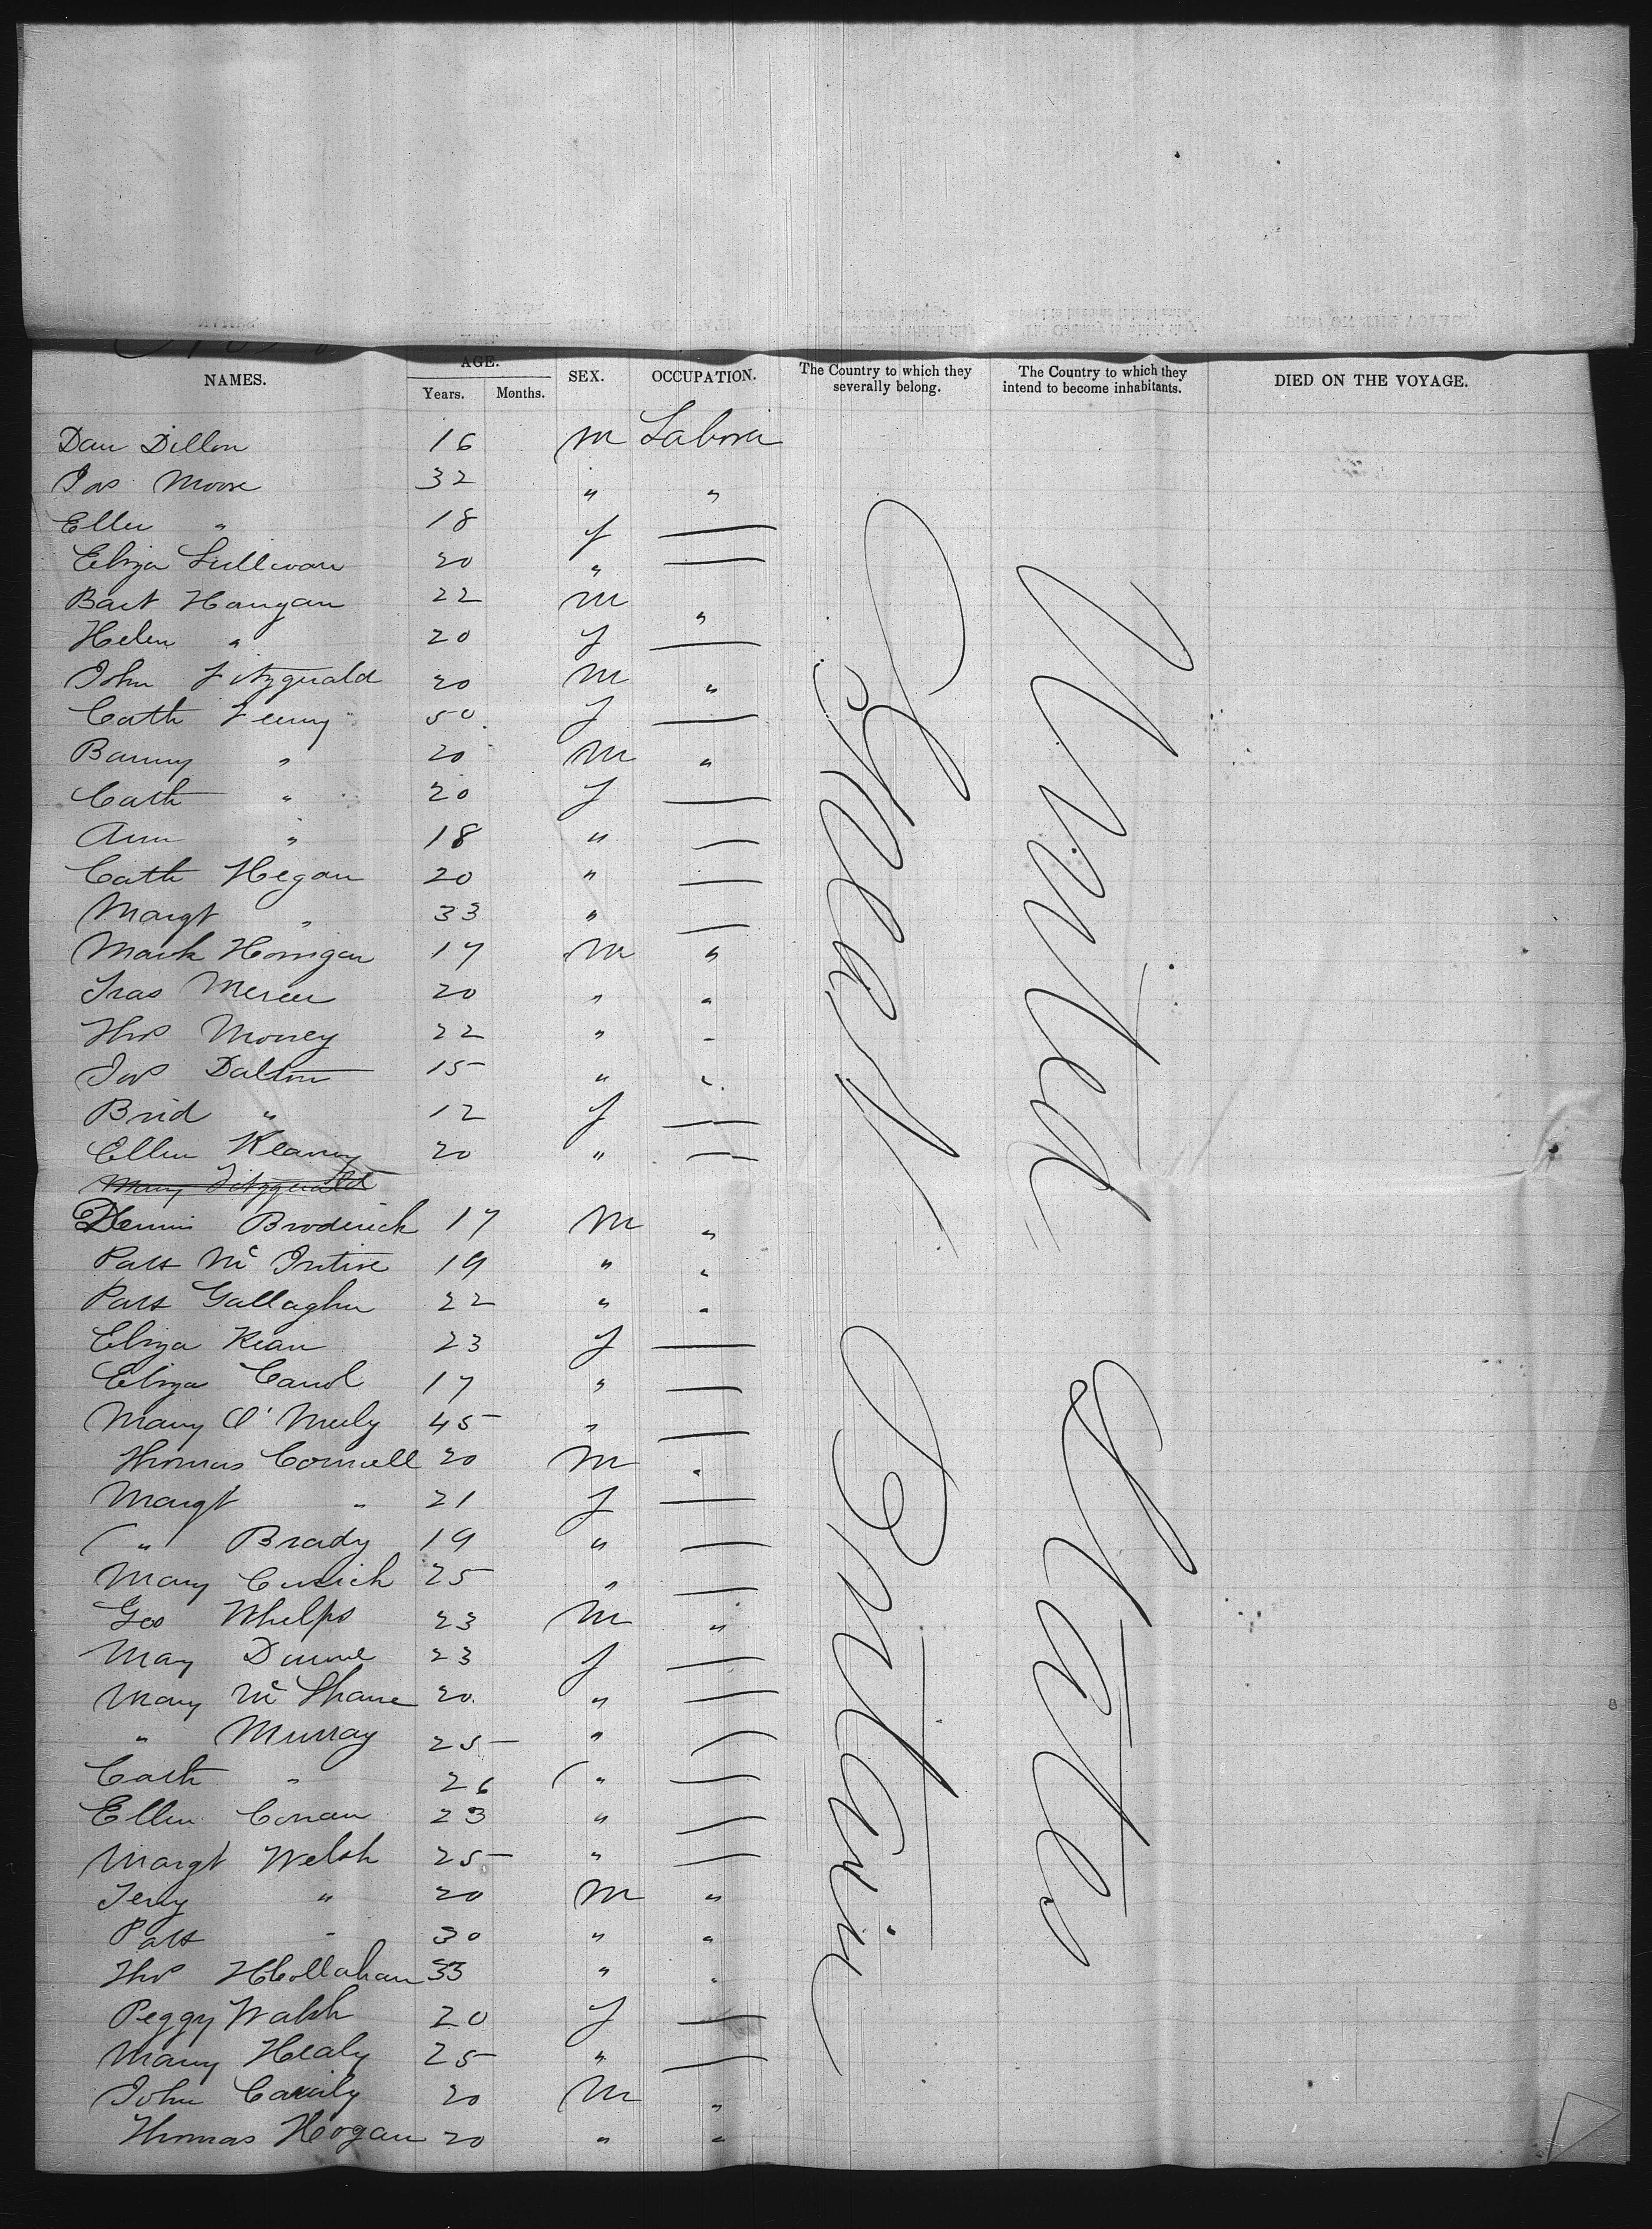 NAMES. AGE. Years. Months. SEX. OCCUPATION. The Country to which they severally belong. The Country to which they intend to become inhabitants. DIED ON THE VOYAGE.
Dan Dillon 16 m Labour
Jas Moore 32 " "
Ellen " 18 f —
Eliza Sullivan 20 " —
Bart Hangan 22 m "
Helen " 20 f —
John Fitzgerald 20 m "
Cath Feeny 50 f —
Barny " 20 m "
Cath " 20 f —
Ann " 18 " —
Cath Hegan 20 " —
Margt " 33 " —
Mark Horrigan 17 m "
Fras Mercer 20 " "
Thos Money 22 " "
Jos Dalton 15 " "
Brid " 12 f —
Ellen Kearny 20 " —
Mary Fitzgerald
Dennis Broderick 17 m "
Patt Mc Intire 19 " "
Patt Gallagher 22 " "
Eliza Kean 23 f —
Eliza Carrol 17 " —
Mary O' 45 " —
Thomas Connell 20 m "
Margt " 21 f —
" Brady 19 " —
Mary Cusick 25 " —
Geo Whelps 23 m "
Mary Dunne 23 f —
Mary Mc Shane 20 " —
" Murray 25 " —
Cath " 26 " —
Ellen Conan 23 " —
Margt Welsh 25 " —
Jerry " 20 m "
Patt " 30 " "
Thos HCollahan 33 " "
Peggy Walsh 20 f —
Mary Healy 25 " —
John 20 m "
Thomas Hogan 20 " "
Great Britain
United States